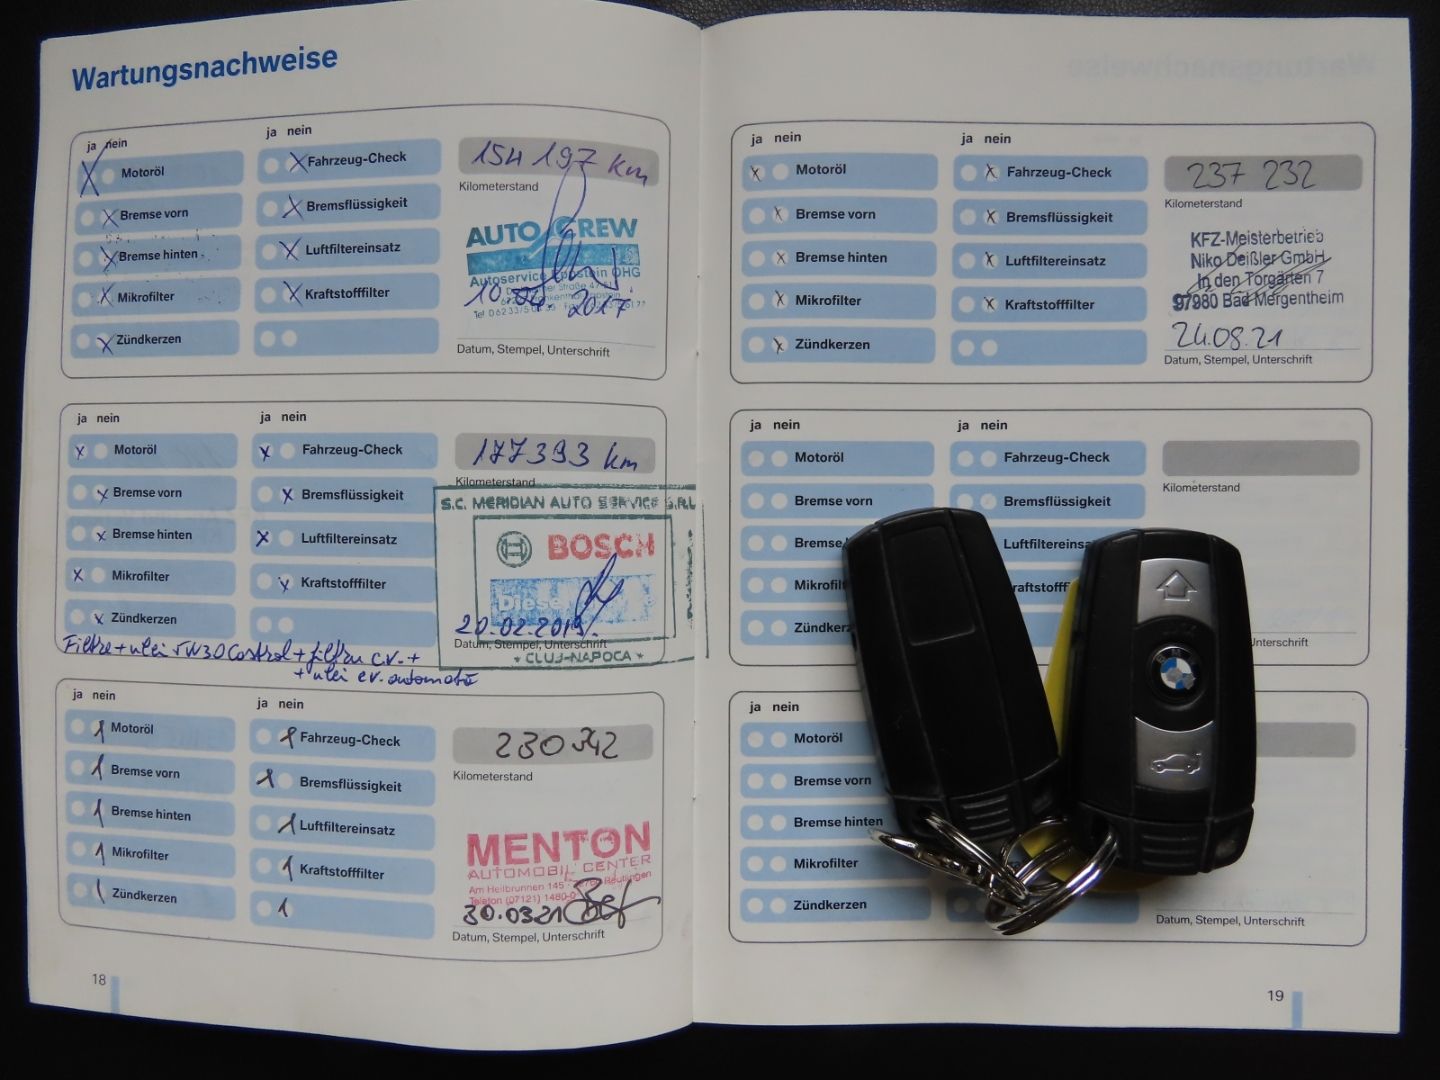 Wartungsnachweise
ja nein
Motoröl
Bremse vorn
Bremse hinten
Mikrofilter
Zündkerzen
ja nein
Fahrzeug-Check
Bremsflüssigkeit
Luftfiltereinsatz
Kraftstofffilter
154 197 km
Kilometerstand
AUTO CREW
Autoservice Eppstein OHG
10.04.2017
Datum, Stempel, Unterschrift
ja nein
Motoröl
Bremse vorn
Bremse hinten
Mikrofilter
Zündkerzen
ja nein
Fahrzeug-Check
Bremsflüssigkeit
Luftfiltereinsatz
Kraftstofffilter
177393 km
Kilometerstand
S.C. MERIDIAN AUTO SERVICE S.R.L
BOSCH
Diesel
20.02.2019.
Datum, Stempel, Unterschrift
* CLUJ-NAPOCA *
Filtre + ulei 5W30 Castrol + filtru c.v. +
+ ulei cv. automată
ja nein
Motoröl
Bremse vorn
Bremse hinten
Mikrofilter
Zündkerzen
ja nein
Fahrzeug-Check
Bremsflüssigkeit
Luftfiltereinsatz
Kraftstofffilter
230 342
Kilometerstand
MENTON
AUTOMOBIL CENTER
Am Heilbrunnen 145 Reutlingen
Telefon (07121) 1480-0
30.03.21
Datum, Stempel, Unterschrift
18
ja nein
Motoröl
Bremse vorn
Bremse hinten
Mikrofilter
Zündkerzen
ja nein
Fahrzeug-Check
Bremsflüssigkeit
Luftfiltereinsatz
Kraftstofffilter
237 232
Kilometerstand
KFZ-Meisterbetrieb
Niko Deißler GmbH
In den Torgärten 7
97980 Bad Mergentheim
24.08.21
Datum, Stempel, Unterschrift
ja nein
Motoröl
Bremse vorn
Bremse
Mikrofilter
Zündkerz
ja nein
Fahrzeug-Check
Bremsflüssigkeit
Luftfiltereinsa
Kraftstofff
Kilometerstand
Unterschrift
ja nein
Motoröl
Bremse vorn
Bremse hinten
Mikrofilter
Zündkerzen
Datum, Stempel, Unterschrift
BMW
19